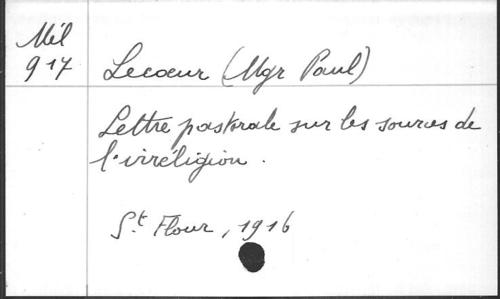 Mél
917
Lecœur (Mgr Paul)
Lettre pastorale sur les sources de
l'irréligion.
St Flour, 1916